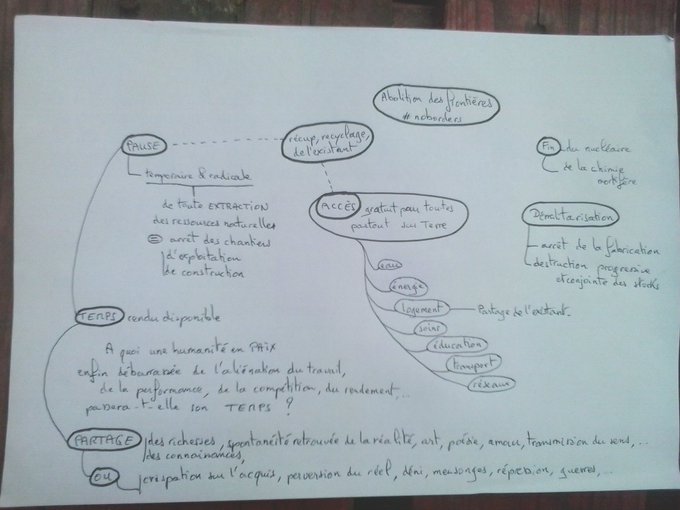 Abolition des frontières
# noborders
PAUSE
récup, recyclage,
de l'existant
temporaire & radicale
de toute EXTRACTION
des ressources naturelles
= arrêt des chantiers
d'exploitation
de construction
Fin du nucléaire
de la chimie
mortifère
ACCÈS gratuit pour toutes
partout sur Terre
Démilitarisation
arrêt de la fabrication
destruction progressive
et conjointe des stocks
eau
énergie
logement Partage de l'existant.
soins
éducation
transport
réseaux
TEMPS rendu disponible
A quoi une humanité en PAIX
enfin débarrassée de l'aliénation du travail,
de la performance, de la compétition, du rendement,...
passera-t-elle son TEMPS ?
PARTAGE des richesses, spontanéité retrouvée de la réalité, art, poésie, amour, transmission du sens, ...
des connaissances,
OU crispation sur l'acquis, perversion du réel, déni, mensonges, répression, guerres, ...